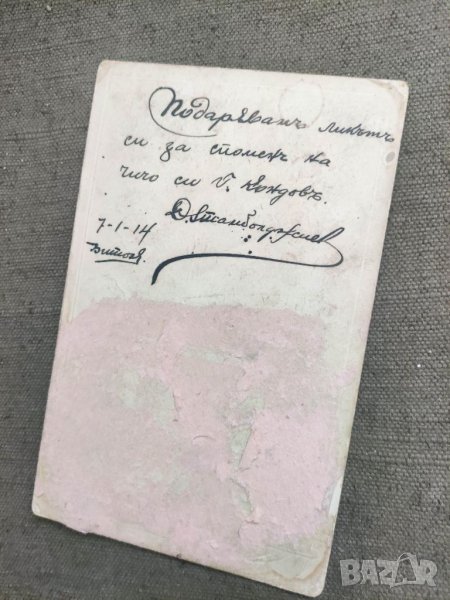 Подарявамъ ликътъ
си за споменъ на
чичо си Г. Кондовъ.
Д. Стамболджиев
7-1-14
Битоля.
BAZAR